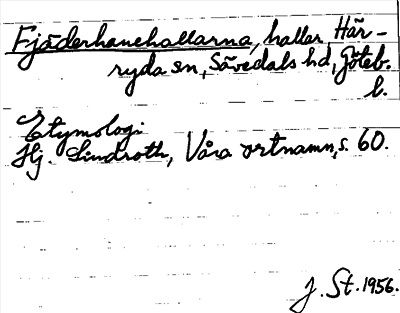 Fjäderhanehallarna, hallar Här-
ryda sn, Sävedals hd, Göteb.
l.
Etymologi
Hj. Lindroth, Våra ortnamn, s. 60.
J. St. 1956.